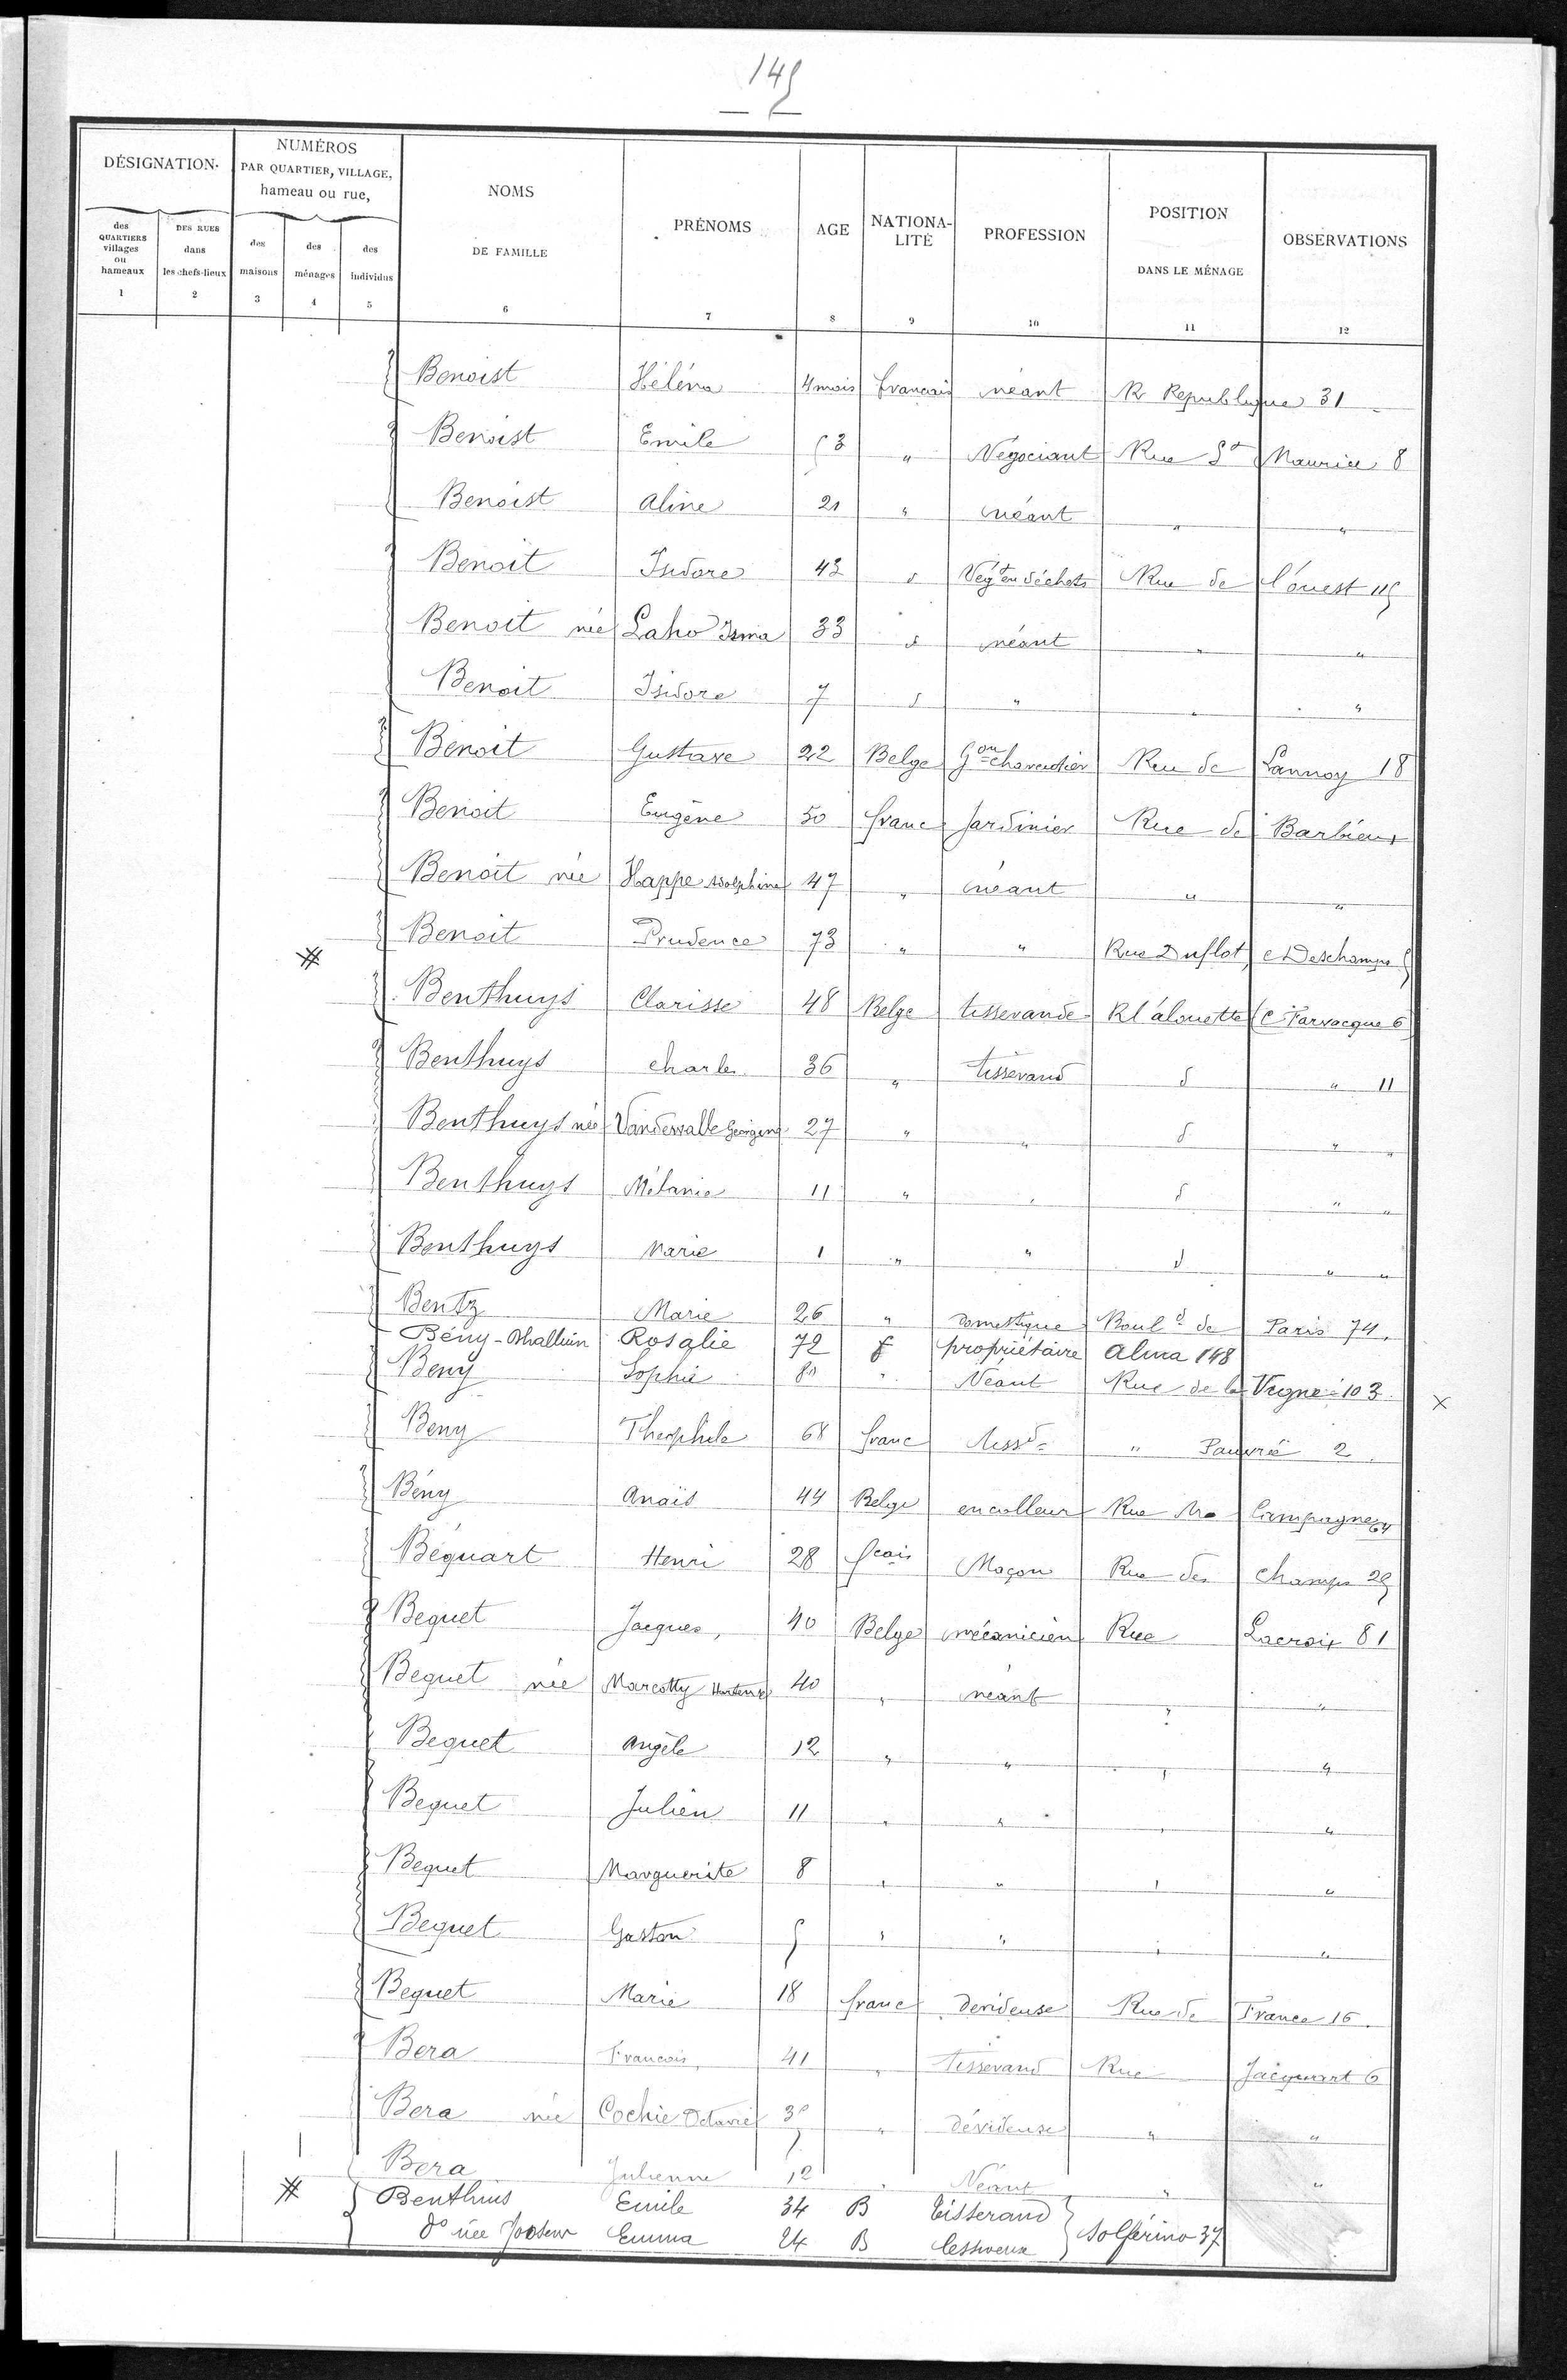 145
DÉSIGNATION.
NUMÉROS PAR QUARTIER, VILLAGE, hameau ou rue,
des QUARTIERS villages ou hameaux 1
DES RUES dans les chefs-lieux 2
des maisons 3
des ménages 4
des individus 5
NOMS DE FAMILLE 6
PRÉNOMS 7
AGE 8
NATIONA-LITÉ 9
PROFESSION 10
POSITION DANS LE MÉNAGE 11
OBSERVATIONS 12
Benoist Héléna 4 mois français néant R Republique 31
Benoist Emile 53 " Négociant Rue St Maurice 8
Benoist Aline 21 " néant " "
Benoit Isidore 43 d Négt en déchets Rue de l'ouest 115
Benoit née Laho Irma 33 d néant " "
Benoit Isidore 7 d " " "
Benoit Gustave 22 Belge Gon Rue de Lannoy 18
Benoit Eugène 50 franc Jardinier Rue de Barbieux
Benoit née Happe Adolphine 47 " néant " "
Benoit Prudence 73 " " Rue Duflot, c Deschamps 5
Benthuys Clarisse 48 Belge tisserande R l'alouette (c Farvacque 6)
Benthuys Charles 36 " tisserand d " 11
Benthuys née Vandewalle Georgine 27 " " d " "
Benthuys Mélanie 11 " " d " "
Benthuys Marie 1 " " d " "
Bentz Marie 26 " domestique Bould de Paris 74.
Bény-Dhalluin Rosalie 72 f propriétaire Alma 148
Beny Sophie 80 " Néant Rue de la Vigne 103
Beny Theophile 68 franc tissd " Pauvrée 2
Bény Anaïs 44 Belge encolleur Rue Ma Campagne 64
Béquart Henri 28 fcais Maçon Rue des Champs 25
Bequet Jacques, 40 Belge mécanicien Rue Lacroix 81
Bequet née Marcotty Hortense 40 " néant " "
Bequet Angèle 12 " " " "
Bequet Julien 11 " " " "
Bequet Marguerite 8 " " " "
Bequet Gaston 5 " " " "
Bequet Marie 18 franc devideuse Rue de France 16.
Bera Francois, 41 " tisserand Rue Jacquart 6
Bera née Cochie Octavie 35 " dévideuse " "
Bera Julienne 12 " Néant " "
Benthuis Emile 34 B tisserand
do née Emma 24 B Solférino 37